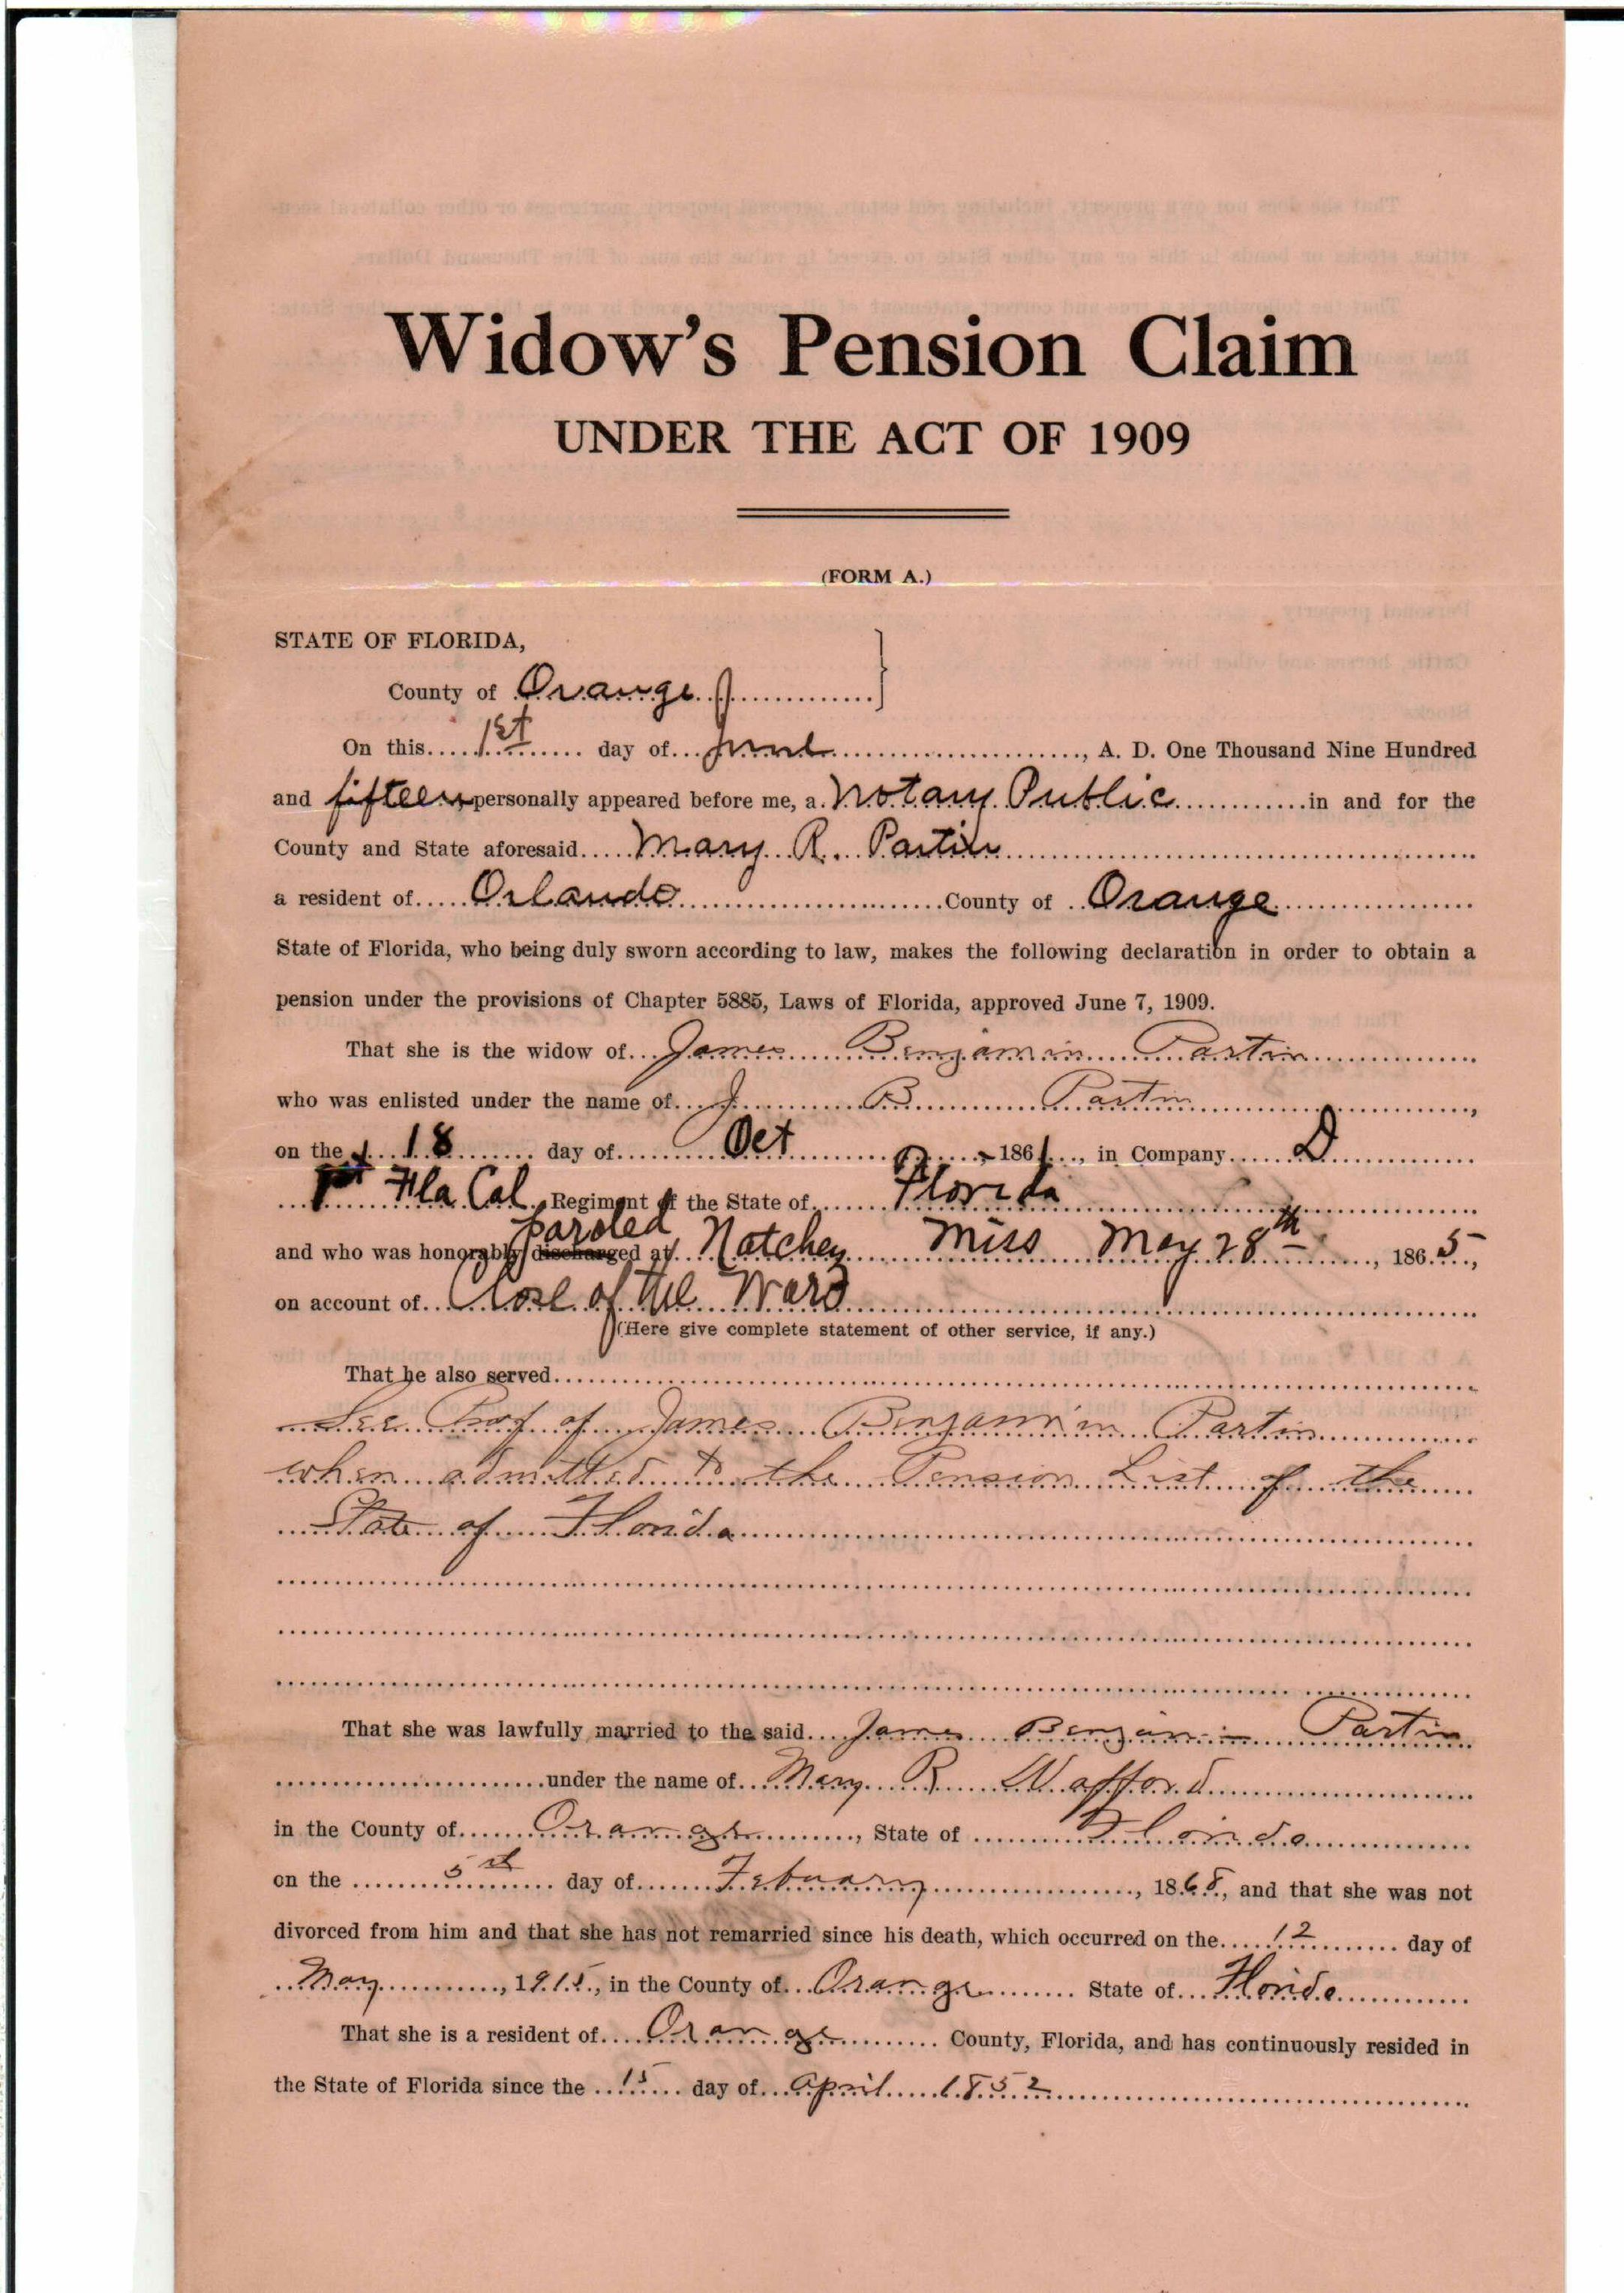 Widow's Pension Claim
UNDER THE ACT OF 1909
(FORM A.)
STATE OF FLORIDA,
County of Orange
On this 1st day of June, A. D. One Thousand Nine Hundred
and fifteen personally appeared before me, a Notary Public in and for the
County and State aforesaid Mary R. Partin
a resident of Orlando County of Orange
State of Florida, who being duly sworn according to law, makes the following declaration in order to obtain a
pension under the provisions of Chapter 5885, Laws of Florida, approved June 7, 1909.
That she is the widow of James Benjamin Partin
who was enlisted under the name of J. B Partin,
on the 18 day of Oct, 1861, in Company D
1st Fla Cal Regiment of the State of Florida
paroled
and who was honorably discharged at Natchez Miss May 28th, 1865,
on account of Close of the War
(Here give complete statement of other service, if any.)
That he also served
See Proof of James Benjamin Partin
when admitted to the Pension List of the
State of Florida
That she was lawfully married to the said James Benjamin Partin
under the name of Mary R Wafford
in the County of Orange, State of Florida
on the 5st day of Febuary, 1868, and that she was not
divorced from him and that she has not remarried since his death, which occurred on the 12 day of
May, 1915, in the County of Orange State of Florida
That she is a resident of Orange County, Florida, and has continuously resided in
the State of Florida since the 15 day of April 1852